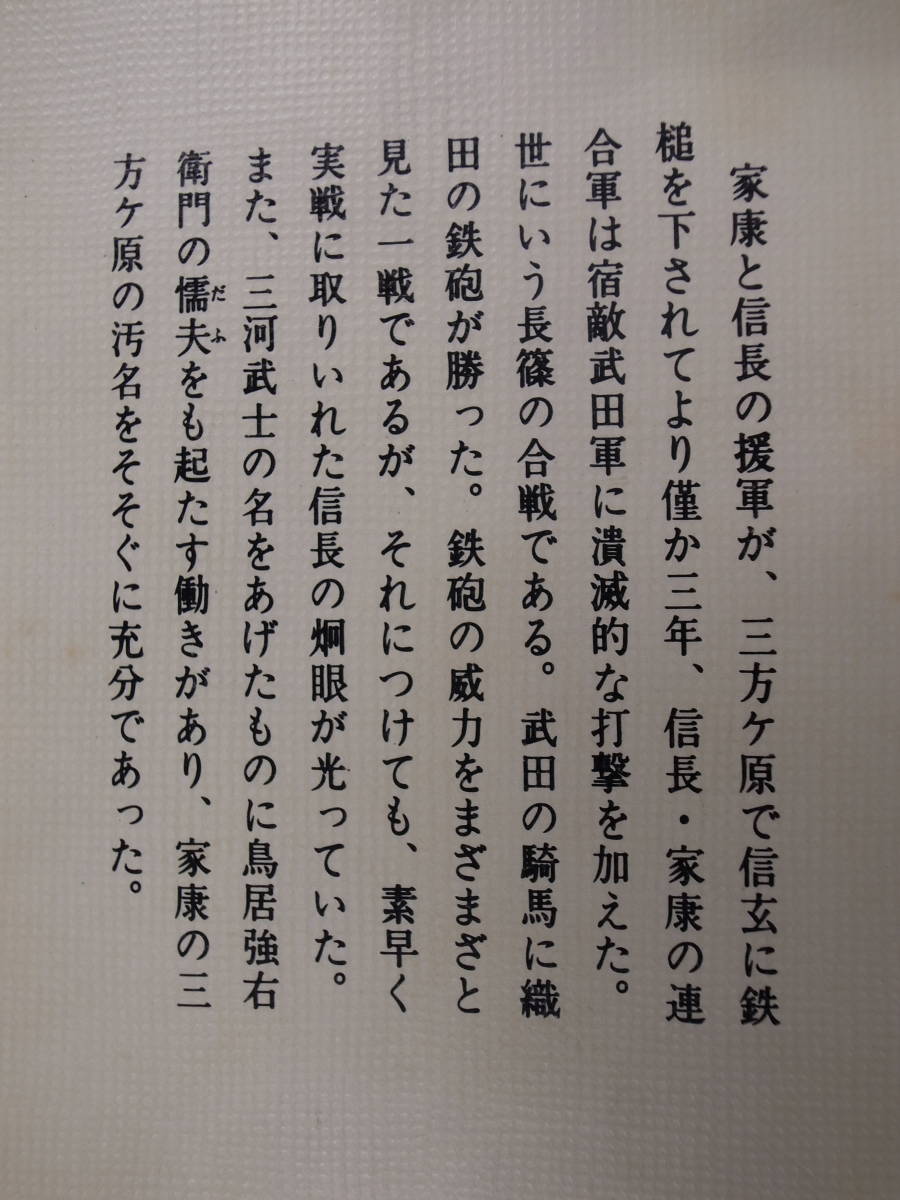 家康と信長の援軍が、三方ケ原で信玄に鉄
槌を下されてより僅か三年、信長・家康の連
合軍は宿敵武田軍に潰滅的な打撃を加えた。
世にいう長篠の合戦である。武田の騎馬に織
田の鉄砲が勝った。鉄砲の威力をまざまざと
見た一戦であるが、それにつけても、素早く
実戦に取りいれた信長の炯眼が光っていた。
また、三河武士の名をあげたものに鳥居強右
衛門の懦夫をも起たす働きがあり、家康の三
だふ
方ケ原の汚名をそそぐに充分であった。